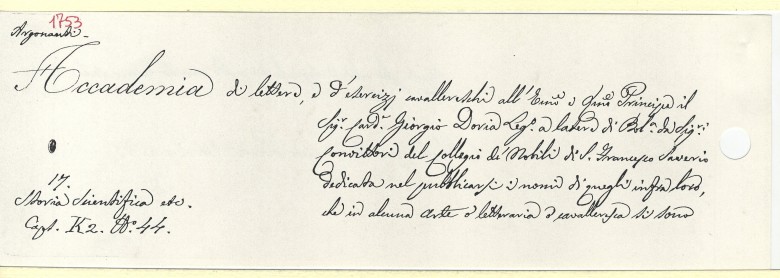 1753
Argonauti-
Accademia di lettere, e d'esercizj cavallereschi all'Emo e Rmo Principe il
Sigr Cardl Giorgio Doria Lego a latere di Bola da Sigri
Convittori del Collegio de' Nobili di S. Francesco Saverio
dedicata nel pubblicarsi i nomi di quegli infra loro,
che in alcuna arte o letteraria o cavalleresca si sono
17.
Storia Scientifica etc.
Caps. K2. No. 44.